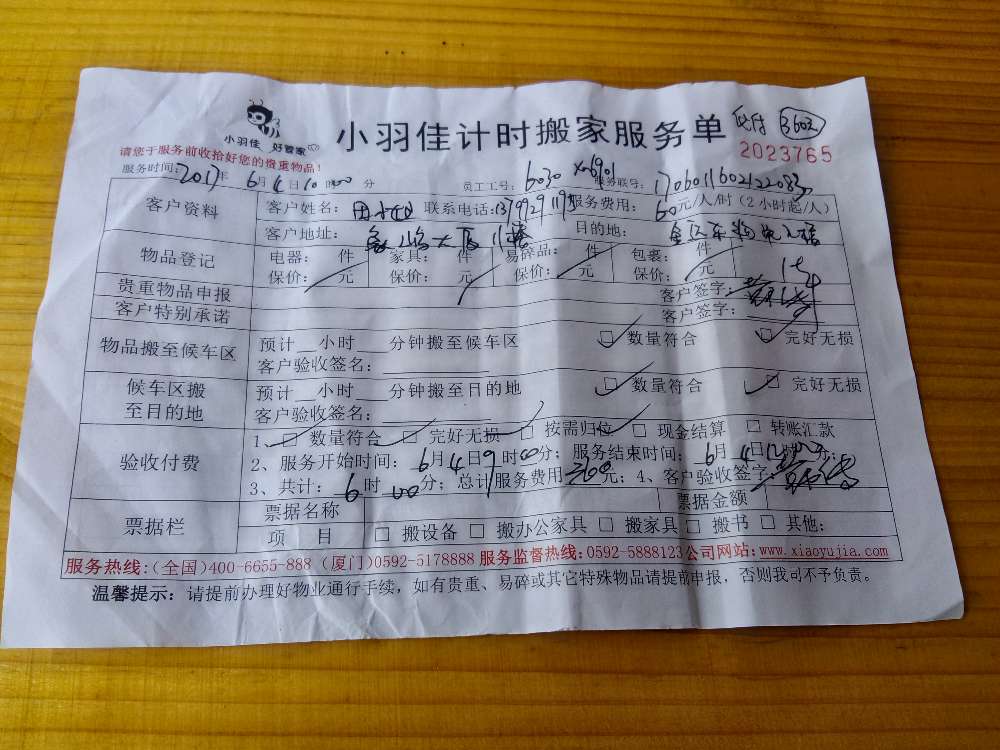 小羽佳 好管家
小羽佳计时搬家服务单 3602
请您于服务前收拾好您的贵重物品! 2023765
服务时间:2017年 6月 4日 10时00分 员工工号: 6030 服务联号:
客户资料 客户姓名: 联系电话: 服务费用: 60元/人/时 (2小时起/人)
客户地址: 目的地:
物品登记 电器: 件 家具: 件 易碎品: 件 包装: 件
保价: 元 保价: 元 保价: 元 保价: 元
贵重物品申报 客户签字:
客户特别承诺 客户签字:
物品搬至候车区 预计__小时___分钟搬至候车区 ☑ 数量符合 ☑ 完好无损
客户验收签名:
候车区搬至目的地 预计__小时___分钟搬至目的地 ☑ 数量符合 ☑ 完好无损
客户验收签名:
验收付费 1、☑ 数量符合 ☑ 完好无损 ☑ 按需归位 □ 现金结算 □ 转账汇款
2、服务开始时间: 6月4日9时00分; 服务结束时间: 6月4日12时 分;
3、共计: 6时00分; 总计服务费用360元; 4、客户验收签字:
票据栏 票据名称 票据金额
项 目 □ 搬设备 □ 搬办公家具 □ 搬家具 □ 搬书 □ 其他:
服务热线:(全国)400-6655-888 (厦门)0592-5178888 服务监督热线:0592-5888123 公司网站:www.xiaoyujia.com
温馨提示: 请提前办理好物业通行手续, 如有贵重、易碎或其它特殊物品请提前申报, 否则我司不予负责。